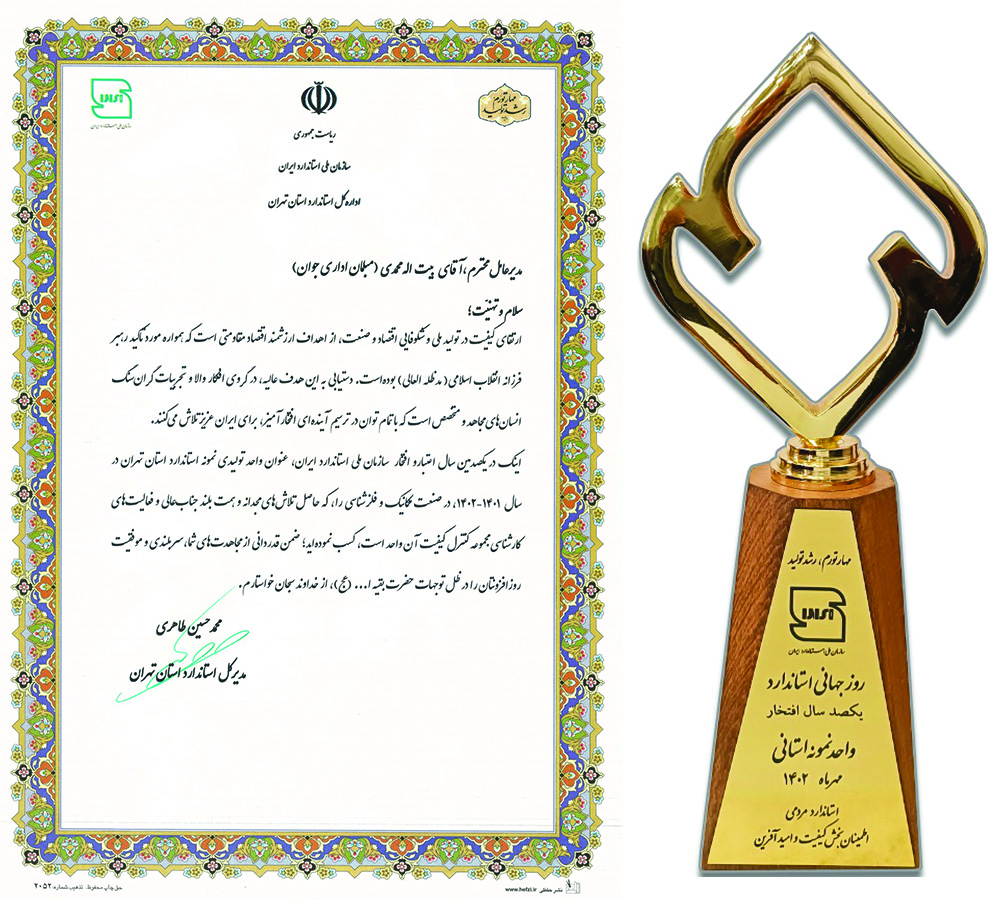 مهار تورم
رشد تولید
سازمان ملی استاندارد ایران
ریاست جمهوری
سازمان ملی استاندارد ایران
اداره کل استاندارد استان تهران
مدیرعامل محترم، آقای بیت اله محمدی (مبلمان اداری جوان)
سلام و تهنیت؛
ارتقای کیفیت در تولید ملی و شکوفایی اقتصاد و صنعت، از اهداف ارزشمند اقتصاد مقاومتی است که همواره مورد تأکید رهبر
فرزانه انقلاب اسلامی (مدظله العالی) بوده‌است. دستیابی به این هدف عالیه، در گروی افکار والا و تجربیات گران‌سنگ
انسان‌های مجاهد و متخصص است که با تمام توان در ترسیم آینده‌ای افتخارآمیز، برای ایران عزیز تلاش می‌کنند.
اینک در یکصدمین سال اعتبار و افتخار سازمان ملی استاندارد ایران، عنوان واحد تولیدی نمونه استاندارد استان تهران در
سال ۱۴۰۱-۱۴۰۲، در صنعت مکانیک و فلزشناسی را، که حاصل تلاش‌های مجدانه و همت بلند جناب‌عالی و فعالیت‌های
کارشناسی مجموعه کنترل کیفیت آن واحد است، کسب نموده‌اید؛ ضمن قدردانی از مجاهدت‌های شما، سربلندی و موفقیت
روزافزونتان را در ظل توجهات حضرت بقیه ا... (عج)، از خداوند سبحان خواستارم.
محمدحسین طاهری
مدیرکل استاندارد استان تهران
نشر حفظی www.hefzi.ir
حق چاپ محفوظ. تذهیب شماره: ۲۰۵۲
مهار تورم، رشد تولید
سازمان ملی استاندارد ایران
روز جهانی استاندارد
یکصد سال افتخار
واحد نمونه استانی
مهرماه ۱۴۰۲
استاندارد مردمی
اطمینان بخش کیفیت و امید آفرین